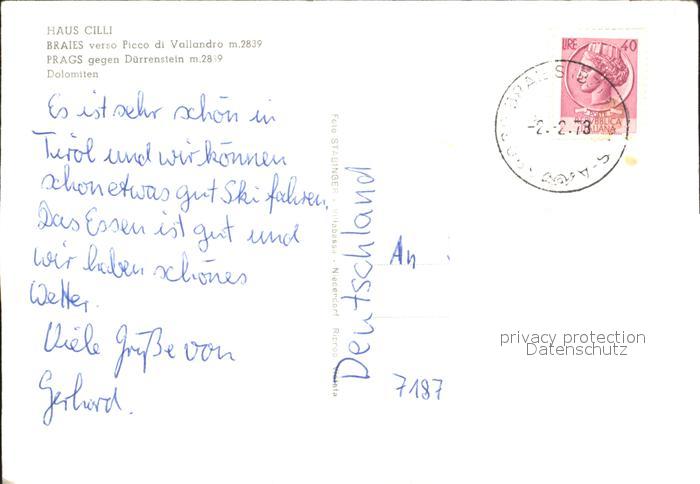 HAUS CILLI
BRAIES verso Picco di Vallandro m.2839
PRAGS gegen Dürrenstein m.2839
Dolomiten
Es ist sehr schön in
Tirol und wir können
schon etwas gut Ski fahren.
Das Essen ist gut und
wir haben schönes
Wetter.
Viele Grüße von
Gerhard.
Foto STABINGER - Villabassa - Niederdorf
Deutschland
An
7187
LIRE 40
REPUBBLICA
ITALIANA
BRAIES
-2.-2.73
privacy protection
Datenschutz